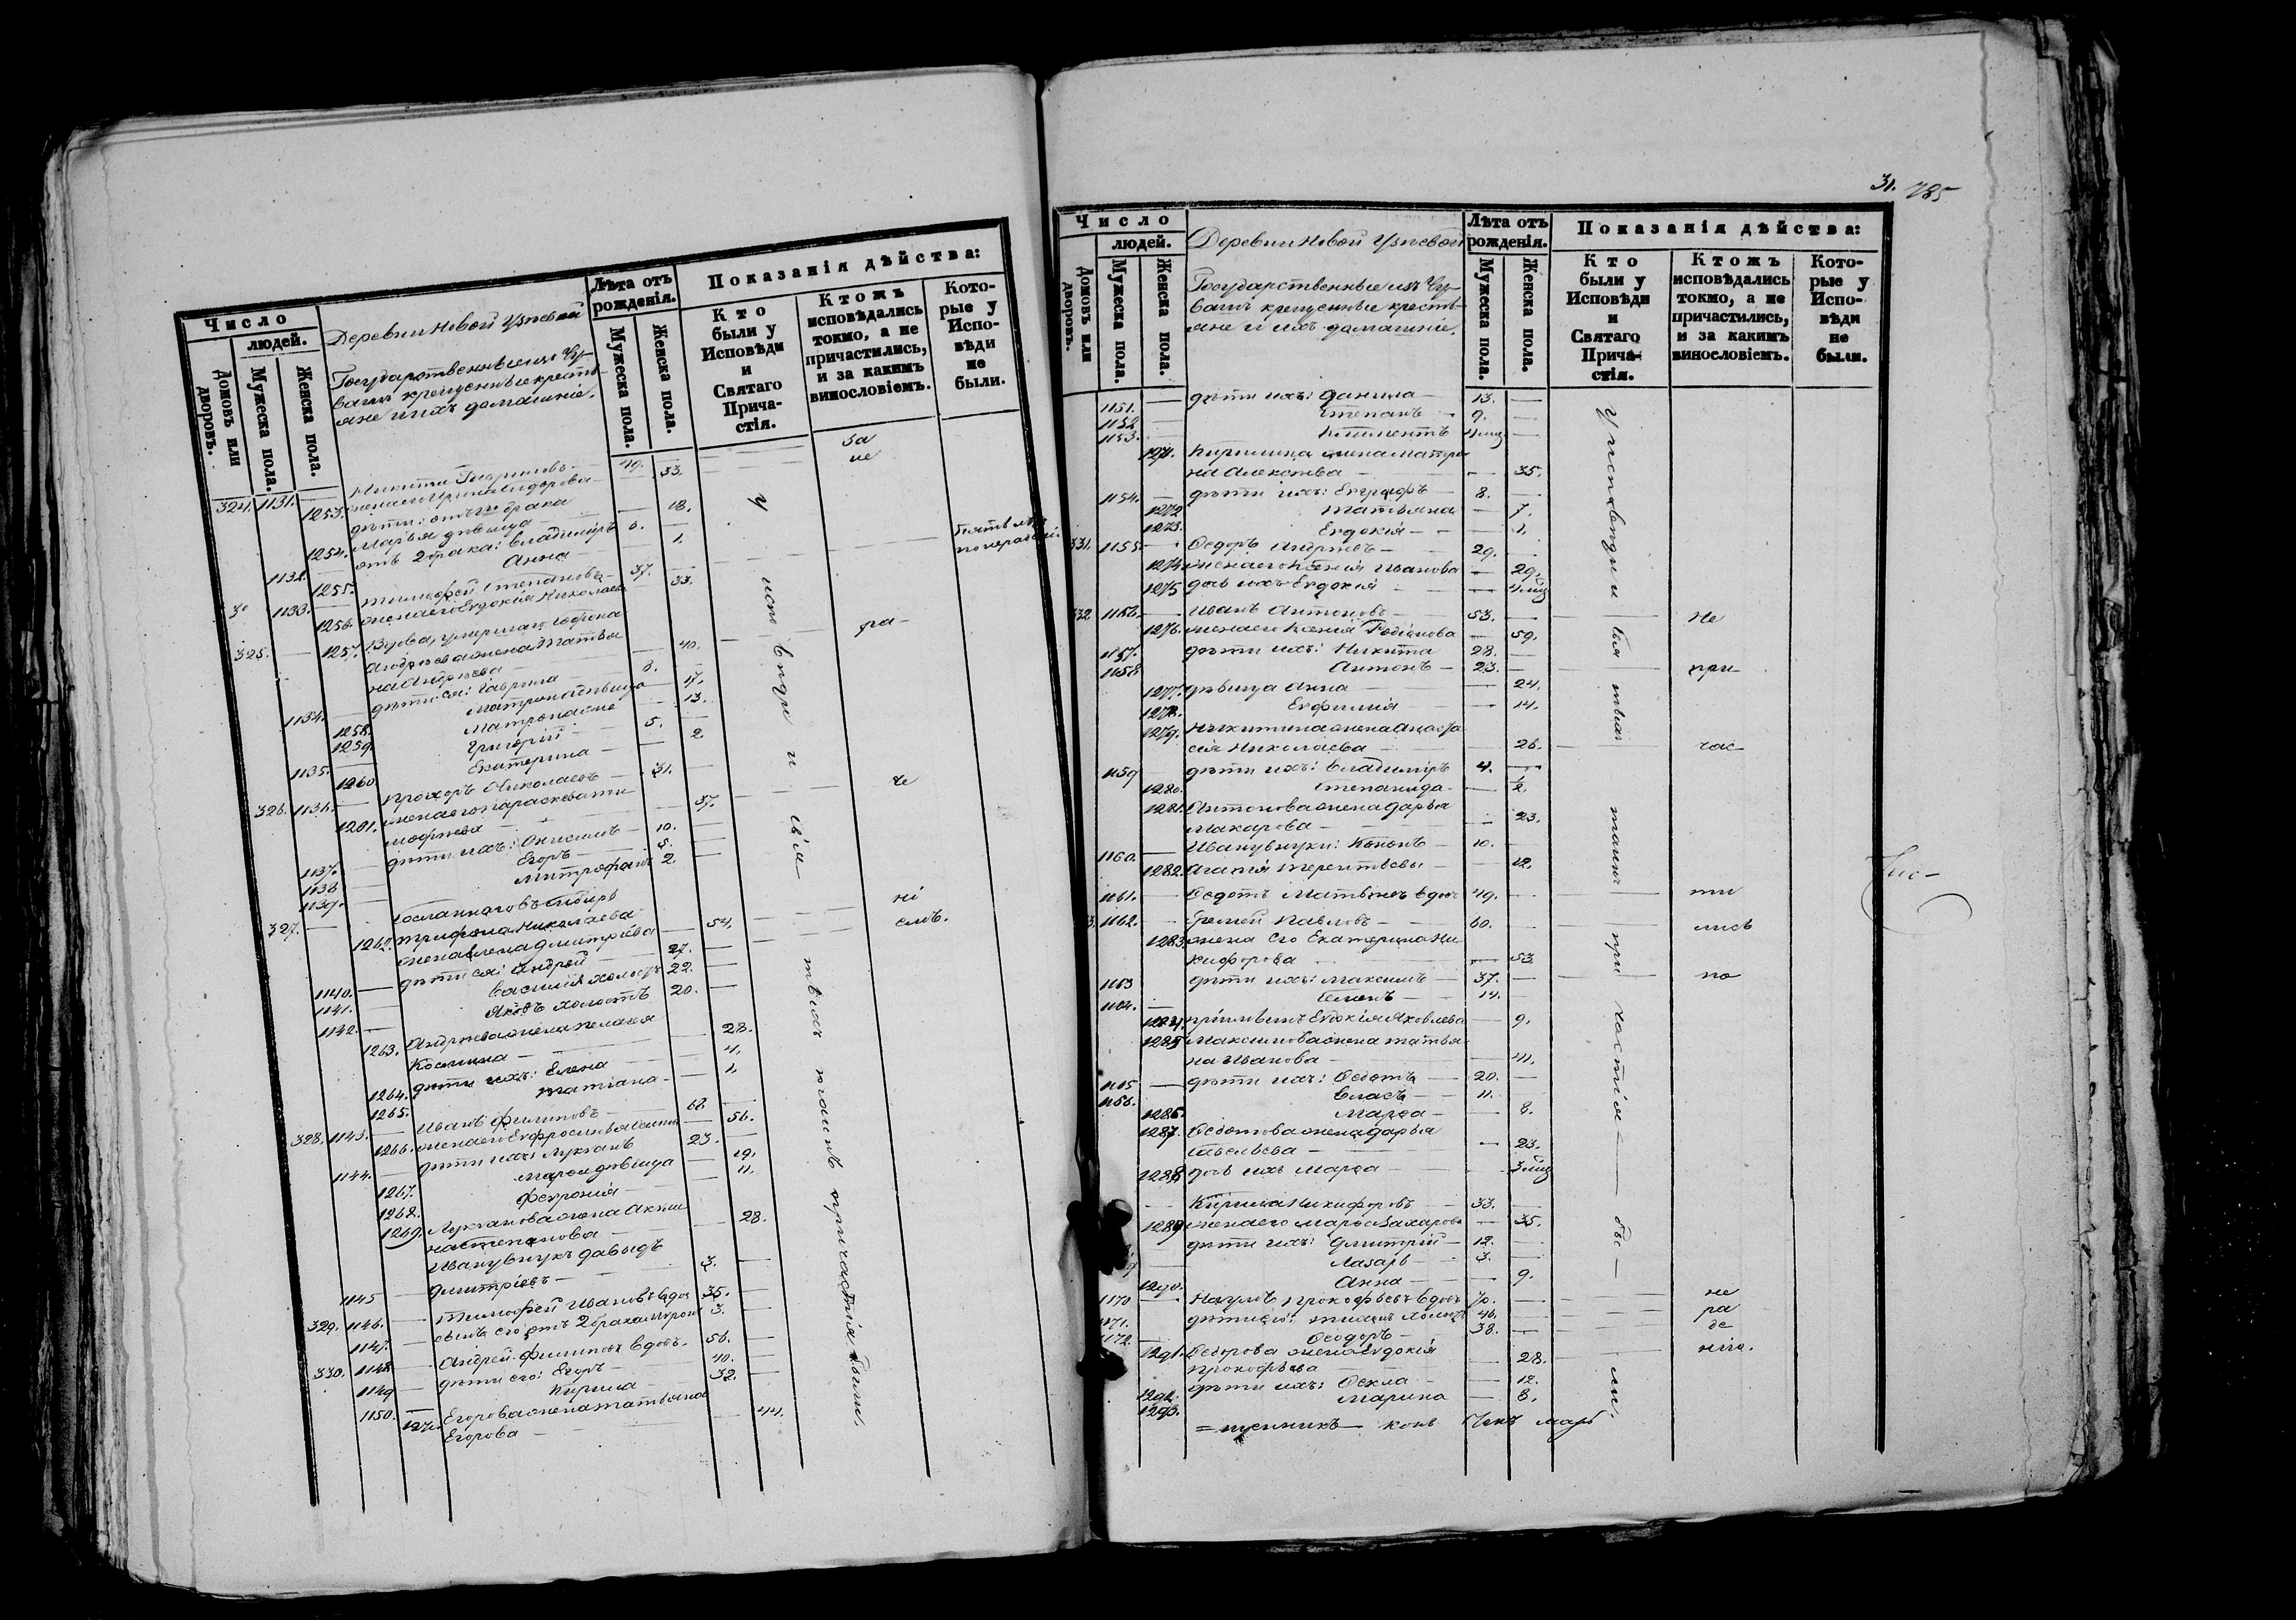 Число
людей.
Домовъ или дворовъ.
Мужеска пола.
Женска пола.
Деревни Новой Узѣевой
Государственные изъ Чу-
вашъ крещенные крестья-
яне и ихъ домашніе.
Лѣта отъ рожденія.
Мужеска пола.
Женска пола.
Показанія дѣйства:
Кто были у Исповѣди и Святаго Причастія.
Ктожъ исповѣдались токмо, а не причастились, и за какимъ винословіемъ.
Которые у Исповѣди не были.
324. 1131. — Никита — 49. —
1253. жена его Ирина Сидорова — 33.
дѣти: отъ 1го брака
1254. Марья дѣвица — 18.
1132. отъ 2 брака: Владиміръ
1255. Анна — 1.
1133. — Тимофей Степановъ — 37.
1256. жена его Евдокія Николаева — 33.
325. — 1257. Вдова, умершаго
Андреева жена Татья-
на Андреева — 40.
1134. — дѣти ея: Гаврила — 8.
1258. Матрона дѣвица — 17.
1259. Матрона — 13.
1135. — Григорій — 5. —
1260. Екатерина — 2
326. 1136. — Прохоръ Николаевъ — 31. —
1261. жена его Параскева Ти-
мофѣева — 37.
1137. — дѣти ихъ: Онисимъ — 10. —
1138 — Егоръ — 5. —
1139. — Митрофанъ 2. —
327. — Сосланнаго въ Сибирь
1262. Трифона Николаева
жена Елена Дмитріева — 54.
1140. — дѣти ея: Андрей — 27. —
1141. — Василій холостъ 22. —
1142. — Яковъ холостъ 20. —
1263. Андреева жена Пелагея
Козмина — 28.
1264. дѣти ихъ: Елена — 4.
1265. Татіана — 1.
328. 1143. — Иванъ Филиповъ — 62
1266. жена его Евфросинья — 56.
1144. — дѣти ихъ: Лукіанъ 23. —
1267. дѣвица — 19.
1268. Февронія — 11.
1269. Лукіанова жена Акили-
на Степанова — 28.
Ивану внукъ Давыдъ
1145 — Дмитріевъ — 3. —
329. 1146. — Тимофей Ивановъ вдов 35. —
1147. — сынъ его отъ 2 брака Миронъ 3.
330. 1148 — Андрей Филиповъ вдовъ. 56. —
1149 — дѣти его: Егоръ — 40. —
1150. — Кирила — 32. —
1270. Егорова жена Татьяна
Егорова — 44.
за
не
ра-
че
ні
емъ.
31. 285
Число
людей.
Домовъ или дворовъ.
Мужеска пола.
Женска пола.
Деревни Новой Узѣевой
Государственные изъ Чу-
вашъ крещенные крестья-
яне и ихъ домашніе.
Лѣта отъ рожденія.
Мужеска пола.
Женска пола.
Показанія дѣйства:
Кто были у Исповѣди и Святаго Причастія.
Ктожъ исповѣдались токмо, а не причастились, и за какимъ винословіемъ.
Которые у Исповѣди не были.
1151. — дѣти ихъ: Данила — 13. —
1152 — Степанъ — 9. —
1153. — Климентъ 4 мц. —
1271. Кирилина жена Матро-
на Алексѣева — 35.
1154. — дѣти ихъ: Евграфъ — 8. —
1272 Татьяна — 7.
1273. Евдокія — 1.
331. 1155. — Ѳедоръ Андреевъ — 29. —
1274 жена его Ксенія Иванова — 29.
1275 дочь ихъ Евдокія — 4 мц
332 1156. — Иванъ Антоновъ — 53. —
1276. жена его Ксенія Родіонова — 59.
1157. дѣти ихъ: Никита 28. —
1158 Антонъ — 23. —
1277. дѣвица Анна — 24.
1278. Евфимія — 14.
1279. Никитина жена Анаста-
сія Николаева — 26.
1159 дѣти ихъ: Владиміръ 4. —
1280. Степанида — ½
1281. Антонова жена Дарья
Макарова — 23.
1160. — Ивану внуки: Кононъ — 10. —
1282. Агапія Терентьевы — 12.
1161. — Ѳедотъ Матвѣевъ вдов 49. —
3. 1162. — Еремей Павловъ — 60. —
1283. жена его Екатерина Ни-
кифорова — 53
1163 дѣти ихъ: Максимъ — 37. —
1164. — Семенъ — 14. —
1284. пріимышъ Евдокія Яковлева — 9.
1285 Максимова жена Татья-
на Иванова — 41.
1165 — дѣти ихъ: Ѳедотъ — 20. —
1166. Власъ — 11. —
1286. Марѳа — 8.
1287. Ѳедотова жена Дарья
Савельева — 23.
1288 дочь ихъ Марѳа — 3 мц
— Кирила Никифоровъ — 33. —
1289 жена его Марѳа Захарова — 35.
дѣти ихъ: Дмитрій — 12. —
— Лазарь — 3. —
1290. Анна — 9.
1170 — Наумъ Прокофьевъ вдовъ 70. —
1171. дѣти его: 40. —
1172. — Ѳеодоръ — 38. —
1291. Ѳедорова жена Евдокія
Прокофьева — 28.
1292. дѣти ихъ: Ѳекла — 12.
1293. Марина — 8.
Не
при
час
ти
лись
по
не
ра
де
нію.